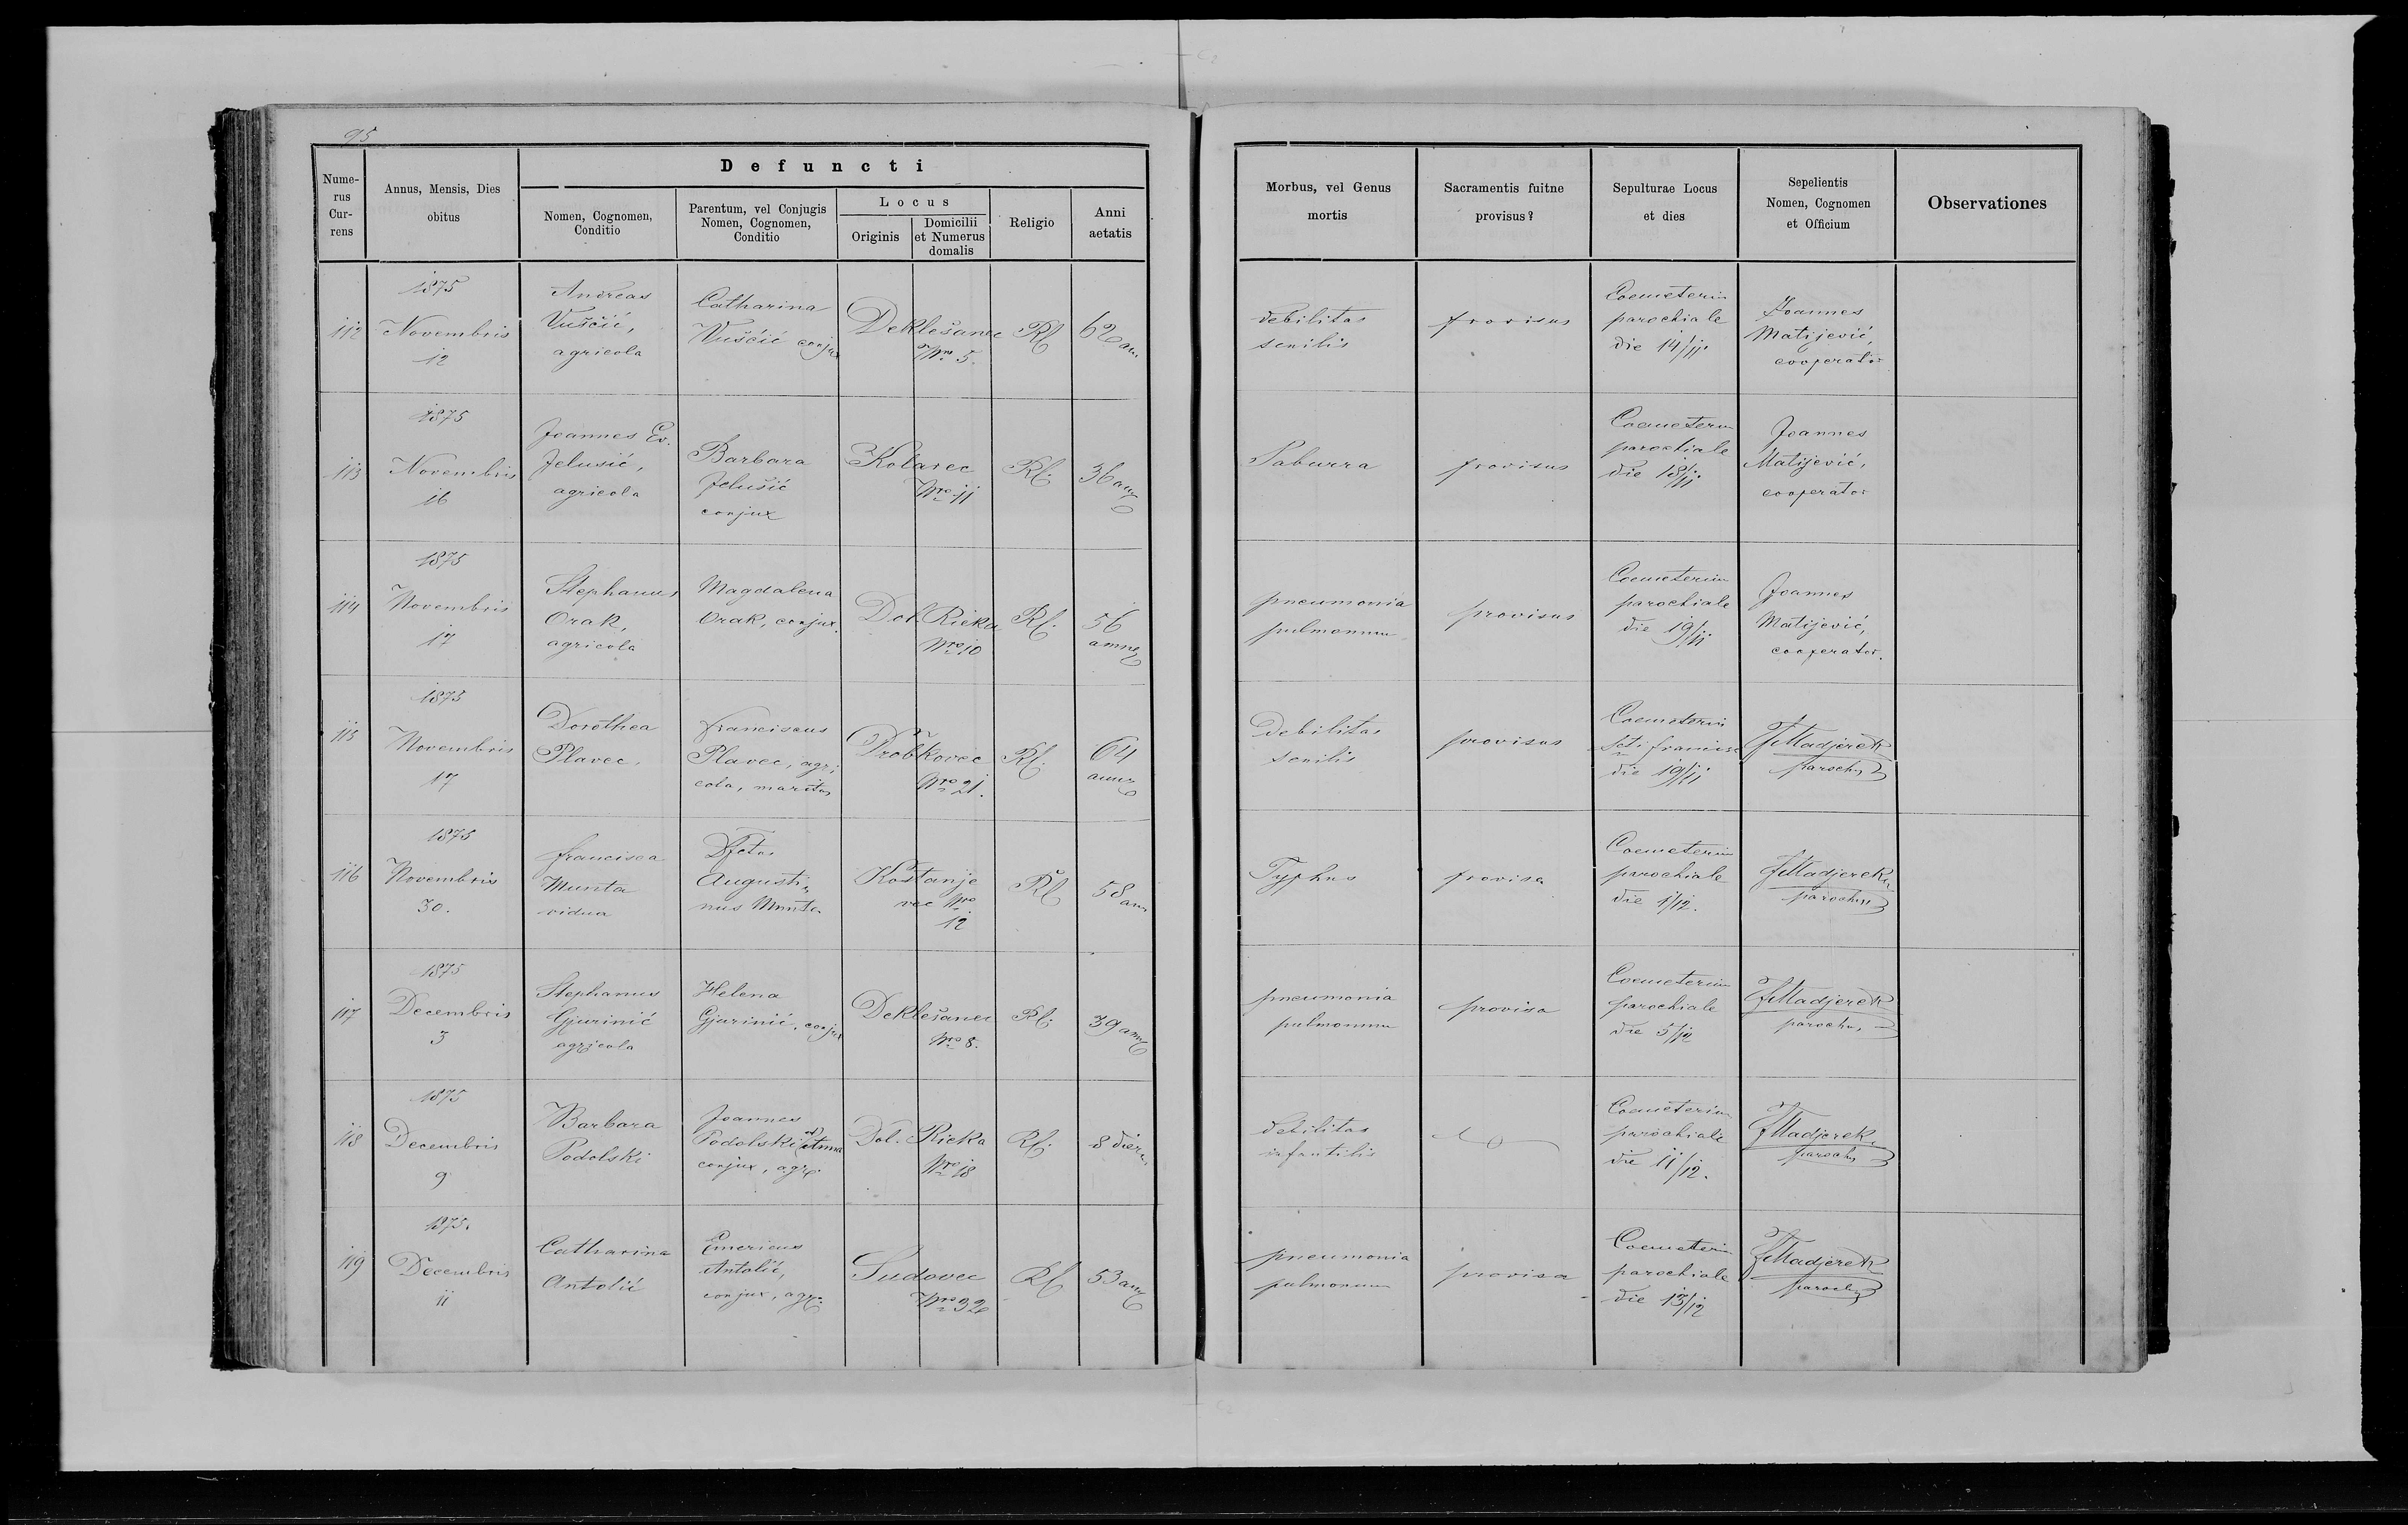 95
Defuncti
Nume-
rus
Cur-
rens
Annus, Mensis, Dies
obitus
Nomen, Cognomen,
Conditio
Parentum, vel Conjugis
Nomen, Cognomen,
Conditio
Locus
Originis
Domicilii
et Numerus
domalis
Religio
Anni
aetatis
Morbus, vel Genus
mortis
Sacramentis fuitne
provisus?
Sepulturae Locus
et dies
Sepelientis
Nomen, Cognomen
et Officium
Observationes
112
1875
Novembris
12
Andreas
Vuščić,
agricola
Catharina
Vuščić conjux
Deklešanec
Nro 5.
Rl
62 an
debilitas
senilis
provisus
Coemeterium
parochiale
die 14/11
Joannes
Matijević,
cooperator
113
1875
Novembris
16
Joannes Ev.
Jelusić,
agricola
Barbara
Jelušić
conjux
Kolarec
Nro 11
Rl.
36 an
Saburra
provisus
Coemeterium
parochiale
die 18/11
Joannes
Matijević,
cooperator
114
1875
Novembris
17
Stephanus
Orak,
agricola
Magdalena
Orak, conjux.
Dol. Rieka
Nro 10
Rl.
56
annor
pneumonia
pulmonum
provisus
Coemeterium
parochiale
die 19/11
Joannes
Matijević,
cooperator.
115
1875
Novembris
17
Dorothea
Plavec.
Franciscus
Plavec, agri
cola, maritus
Drobkovec
Nro 21.
Rl.
64
annor
Debilitas
senilis
provisus
Coemeterium
Scti Francisc
die 19/11
FMadjerek
parochus
116
1875
Novembris
30.
Francisca
Munta
vidua
Dfctus
Augusti
nus Munta
Kostanje
vec Nro
12
Rl
58 an
Typhus
provisa
Coemeterium
parochiale
die 1/12.
FMadjerek
parochus
117
1875
Decembris
3
Stephanus
Gjurinić
agricola
Helena
Gjurinić, conjux
Deklešanec
Nro 8.
Rl.
39 ann
pneumonia
pulmonum
provisa
Coemeterium
parochiale
die 5/12
FMadjerek
parochus
118
1875
Decembris
9
Barbara
Podolski
Joannes
Podolski et Anna
conjux, agr.
Dol. Rieka
Nro 18
Rl.
8 dier
debilitas
infantilis
Coemeterium
parochiale
die 11/12.
FMadjerek
parochus
119
1875.
Decembris
11
Catharina
Antolić
Emericus
Antolić,
conjux, agr.
Sudovec
Nro 32
Rl
53 an
pneumonia
pulmonum
provisa
Coemeterium
parochiale
die 13/12
FMadjerek
parochus